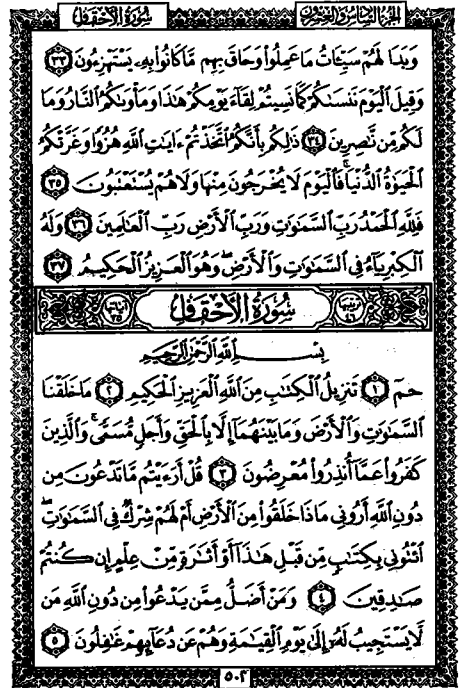 الجزء السادس والعشرون
سورة الأحقاف
وَبَدَا لَهُمْ سَيِّـَٔاتُ مَا عَمِلُوا۟ وَحَاقَ بِهِم مَّا كَانُوا۟ بِهِۦ يَسْتَهْزِءُونَ ٣٣
وَقِيلَ ٱلْيَوْمَ نَنسَىٰكُمْ كَمَا نَسِيتُمْ لِقَآءَ يَوْمِكُمْ هَـٰذَا وَمَأْوَىٰكُمُ ٱلنَّارُ وَمَا
لَكُم مِّن نَّـٰصِرِينَ ٣٤ ذَٰلِكُم بِأَنَّكُمُ ٱتَّخَذْتُمْ ءَايَـٰتِ ٱللَّهِ هُزُوًا وَغَرَّتْكُمُ
ٱلْحَيَوٰةُ ٱلدُّنْيَا ۚ فَٱلْيَوْمَ لَا يُخْرَجُونَ مِنْهَا وَلَا هُمْ يُسْتَعْتَبُونَ ٣٥
فَلِلَّهِ ٱلْحَمْدُ رَبِّ ٱلسَّمَـٰوَٰتِ وَرَبِّ ٱلْأَرْضِ رَبِّ ٱلْعَـٰلَمِينَ ٣٦ وَلَهُ
ٱلْكِبْرِيَآءُ فِى ٱلسَّمَـٰوَٰتِ وَٱلْأَرْضِ ۖ وَهُوَ ٱلْعَزِيزُ ٱلْحَكِيمُ ٣٧
سُورَةُ ٱلْأَحْقَافِ
بِسْمِ ٱللَّهِ ٱلرَّحْمَـٰنِ ٱلرَّحِيمِ
حمٓ ١ تَنزِيلُ ٱلْكِتَـٰبِ مِنَ ٱللَّهِ ٱلْعَزِيزِ ٱلْحَكِيمِ ٢ مَا خَلَقْنَا
ٱلسَّمَـٰوَٰتِ وَٱلْأَرْضَ وَمَا بَيْنَهُمَآ إِلَّا بِٱلْحَقِّ وَأَجَلٍ مُّسَمًّى ۚ وَٱلَّذِينَ
كَفَرُوا۟ عَمَّآ أُنذِرُوا۟ مُعْرِضُونَ ٣ قُلْ أَرَءَيْتُم مَّا تَدْعُونَ مِن
دُونِ ٱللَّهِ أَرُونِى مَاذَا خَلَقُوا۟ مِنَ ٱلْأَرْضِ أَمْ لَهُمْ شِرْكٌ فِى ٱلسَّمَـٰوَٰتِ ۖ
ٱئْتُونِى بِكِتَـٰبٍ مِّن قَبْلِ هَـٰذَآ أَوْ أَثَـٰرَةٍ مِّنْ عِلْمٍ إِن كُنتُمْ
صَـٰدِقِينَ ٤ وَمَنْ أَضَلُّ مِمَّن يَدْعُوا۟ مِن دُونِ ٱللَّهِ مَن
لَّا يَسْتَجِيبُ لَهُۥٓ إِلَىٰ يَوْمِ ٱلْقِيَـٰمَةِ وَهُمْ عَن دُعَآئِهِمْ غَـٰفِلُونَ ٥
٥٠٢